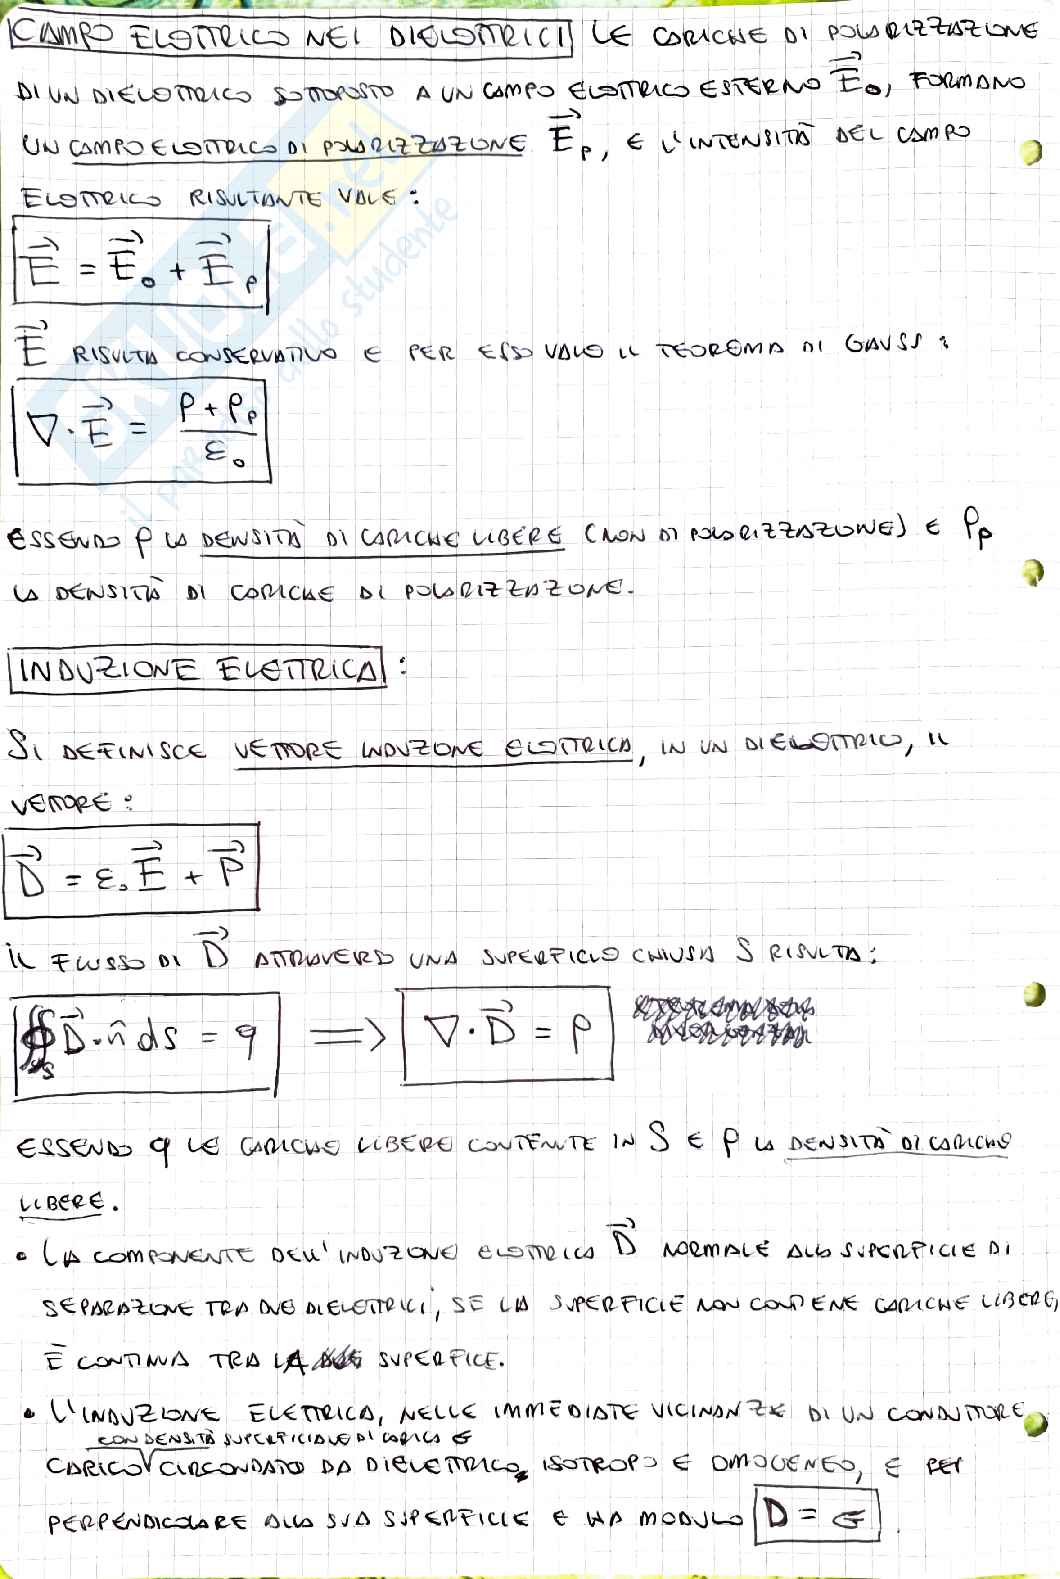 CAMPO ELETTRICO NEI DIELETTRICI LE CARICHE DI POLARIZZAZIONE
DI UN DIELETTRICO SOTTOPOSTO A UN CAMPO ELETTRICO ESTERNO E⃗₀, FORMANO
UN CAMPO ELETTRICO DI POLARIZZAZIONE E⃗ₚ, E L'INTENSITÀ DEL CAMPO
ELETTRICO RISULTANTE VALE:
E⃗ = E⃗₀ + E⃗ₚ
E⃗ RISULTA CONSERVATIVO E PER ESSO VALE IL TEOREMA DI GAUSS:
∇·E⃗ = (ρ + ρₚ)/ε₀
ESSENDO ρ LA DENSITÀ DI CARICHE LIBERE (NON DI POLARIZZAZIONE) E ρₚ
LA DENSITÀ DI CARICHE DI POLARIZZAZIONE.
INDUZIONE ELETTRICA:
SI DEFINISCE VETTORE INDUZIONE ELETTRICA, IN UN DIELETTRICO, IL
VETTORE:
D⃗ = ε₀E⃗ + P⃗
IL FLUSSO DI D⃗ ATTRAVERSO UNA SUPERFICIE CHIUSA S RISULTA:
∯S D⃗·n̂ dS = q ⟹ ∇·D⃗ = ρ
ESSENDO q LE CARICHE LIBERE CONTENUTE IN S E ρ LA DENSITÀ DI CARICHE
LIBERE.
• LA COMPONENTE DELL'INDUZIONE ELETTRICA D⃗ NORMALE ALLA SUPERFICIE DI
SEPARAZIONE TRA DUE DIELETTRICI, SE LA SUPERFICIE NON CONTIENE CARICHE LIBERE,
È CONTINUA TRA LA SUPERFICE.
• L'INDUZIONE ELETTRICA, NELLE IMMEDIATE VICINANZE DI UN CONDUTTORE
CON DENSITÀ SUPERFICIALE DI CARICA σ
CARICO CIRCONDATO DA DIELETTRICO ISOTROPO E OMOGENEO, È PER
PERPENDICOLARE ALLA SUA SUPERFICIE E HA MODULO D = σ
il paradiso dello studente